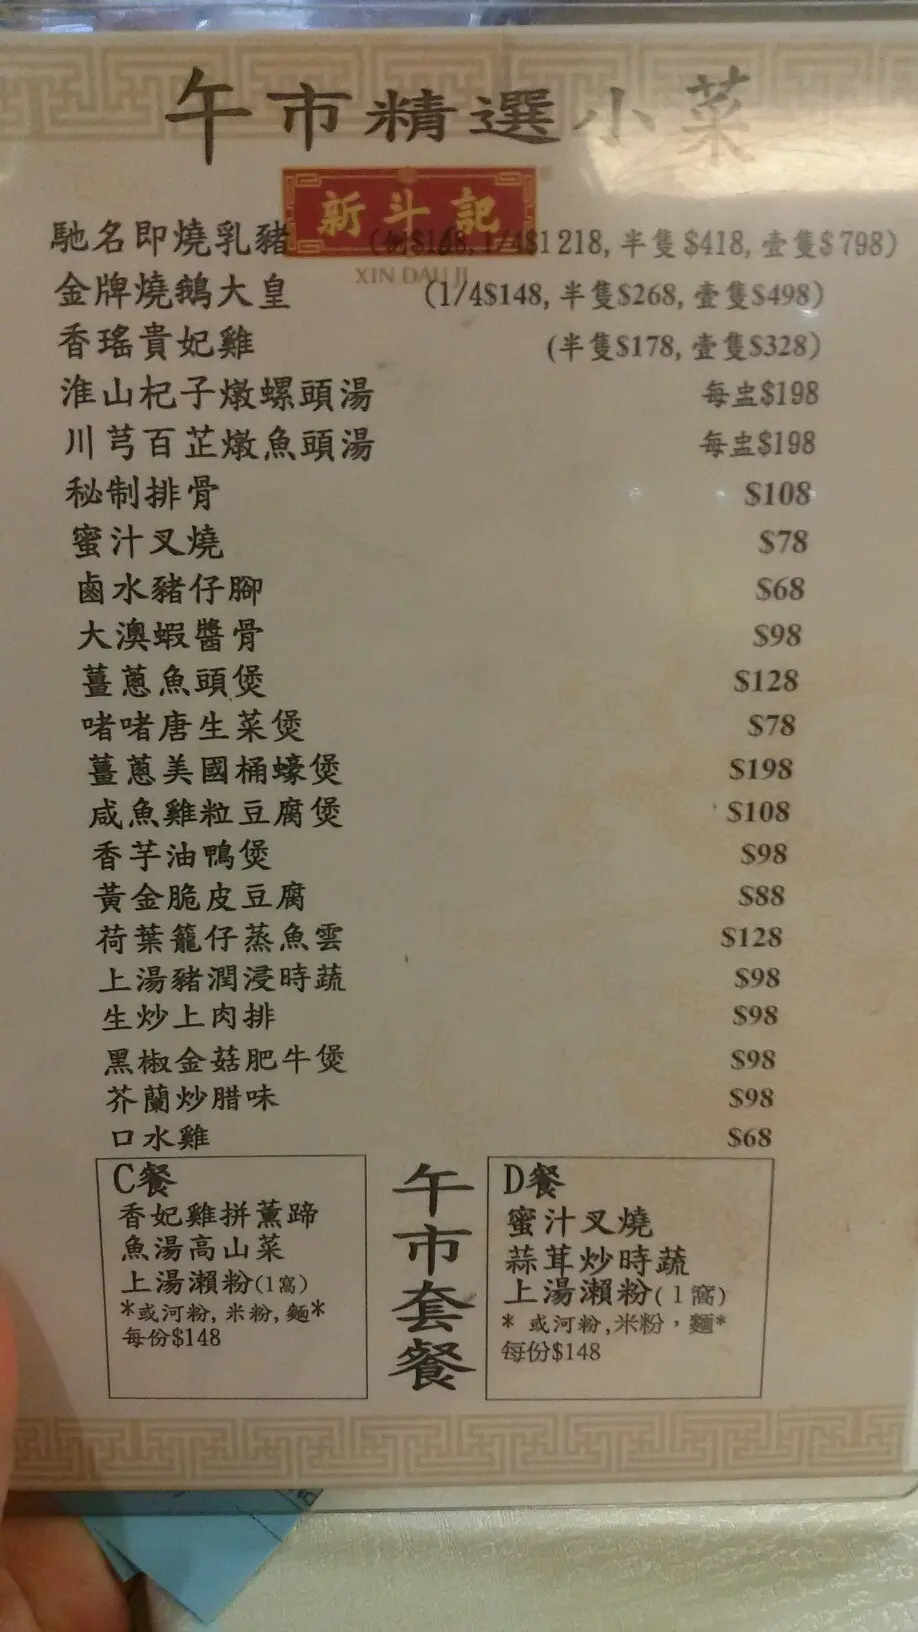 午市精選小菜
新斗記
XIN DAU JI
馳名即燒乳豬 (例$168, 1/4$1218, 半隻$418, 壹隻$798)
金牌燒鵝大皇 (1/4$148, 半隻$268, 壹隻$498)
香瑤貴妃雞 (半隻$178, 壹隻$328)
淮山杞子燉螺頭湯 每盅$198
川芎百芷燉魚頭湯 每盅$198
秘制排骨 $108
蜜汁叉燒 $78
鹵水豬仔腳 $68
大澳蝦醬骨 $98
薑蔥魚頭煲 $128
啫啫唐生菜煲 $78
薑蔥美國桶蠔煲 $198
咸魚雞粒豆腐煲 $108
香芋油鴨煲 $98
黃金脆皮豆腐 $88
荷葉籠仔蒸魚雲 $128
上湯豬潤浸時蔬 $98
生炒上肉排 $98
黑椒金菇肥牛煲 $98
芥蘭炒腊味 $98
口水雞 $68
午市套餐
C餐
香妃雞拼薰蹄
魚湯高山菜
上湯瀨粉(1窩)
*或河粉,米粉,麵*
每份$148
D餐
蜜汁叉燒
蒜茸炒時蔬
上湯瀨粉(1窩)
* 或河粉,米粉，麵*
每份$148